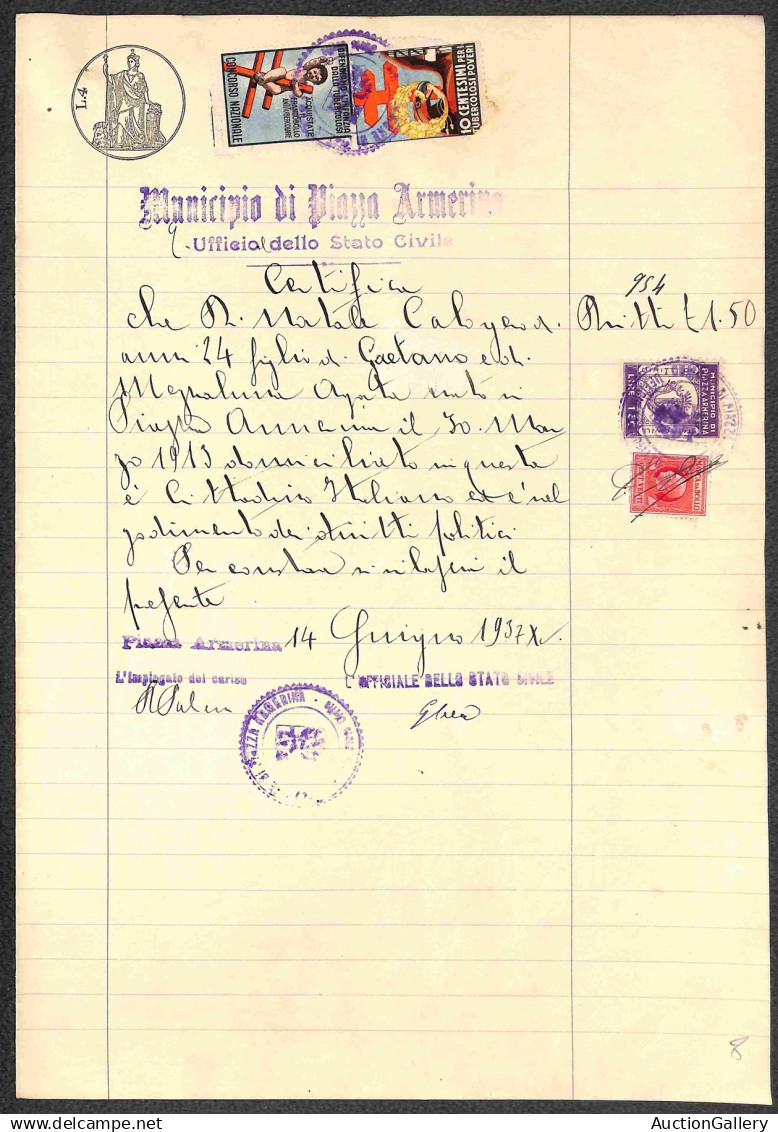 L.4
DIFENDIAMO L'INFANZIA
DALLA TUBERCOLOSI
ACQUISTATE
IL
FRANCOBOLLO
ANTITUBERCOLARE
CONCORSO NAZIONALE
10 CENTESIMI PER I
TUBERCOLOSI POVERI
Municipio di Piazza Armerina
Ufficio dello Stato Civile
Certifica
954
che Natale Calogero di Diritti £ 1.50
anni 24 figlio di Gaetano e di
Agata nato in
Piazza Armerina il 30 Mar
zo 1913 domiciliato in questa
è Cittadino Italiano ed è nel
godimento dei diritti politici
Per constare si rilascia il
presente
MUNICIPIO DI
PIAZZA ARMERINA
Piazza Armerina 14 Giugno 1937 XV.
L'Impiegato del carico L'UFFICIALE DELLO STATO CIVILE
PIAZZA ARMERINA
8
AuctionGallery